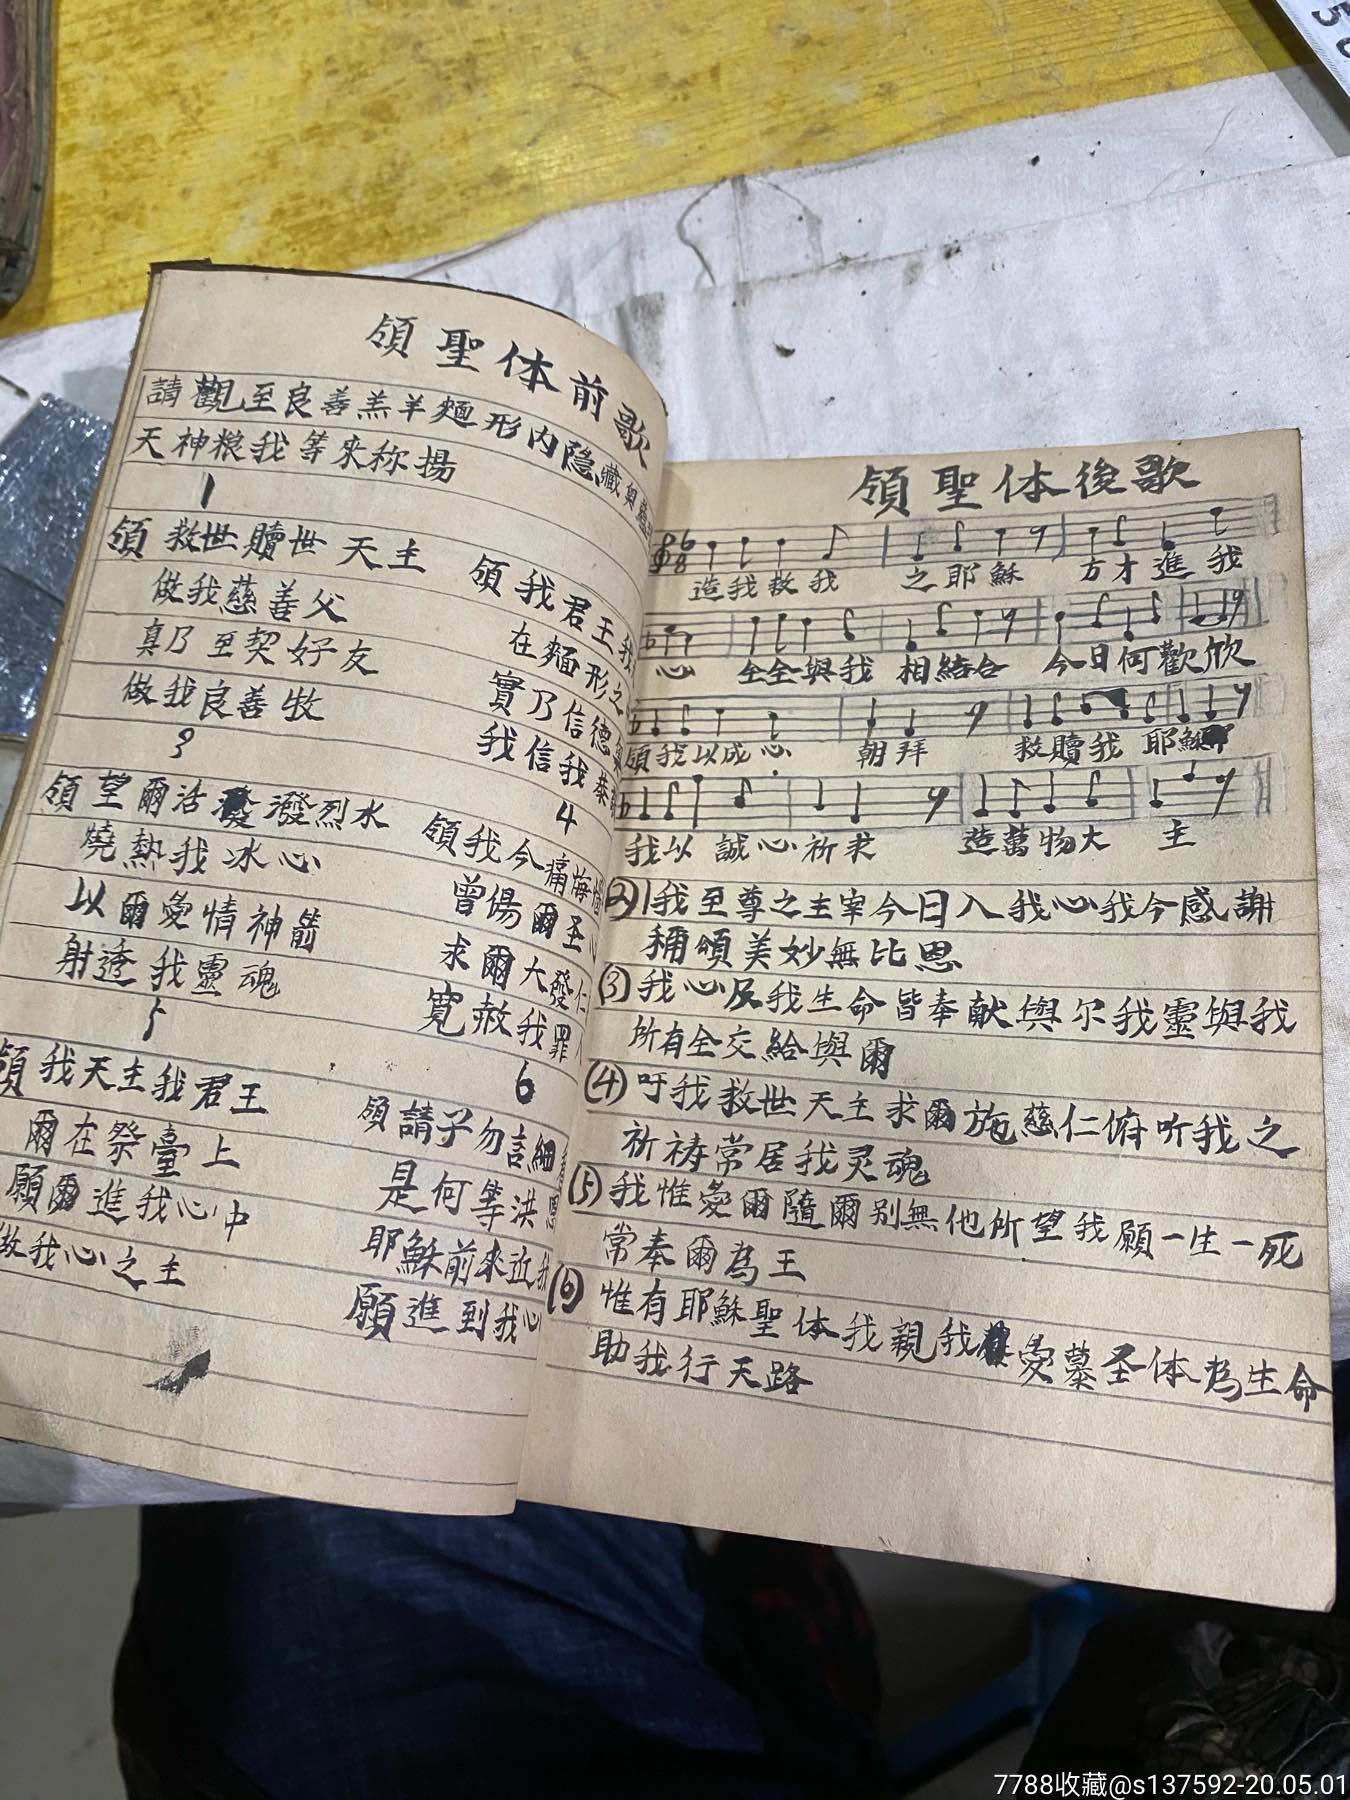 領聖体前歌
請觀至良善羔羊麵形内隐藏奥
天神粮我等來称揚
1
領救世贖世天主
做我慈善父
真乃至契好友
做我良善牧
領我君王我
在麵形之
實乃信德
我信我恭
3
領望爾活潑潑烈水
燒熱我冰心
以爾愛情神箭
射透我靈魂
4
領我今痛悔
曾傷爾圣心
求爾大發仁
寬赦我罪人
5
領我天主我君王
爾在祭臺上
願爾進我心中
做我心之主
6
領請子勿言細
是何等洪恩
耶穌前來近我
願進到我心
領聖体後歌
6
8
造我救我 之耶穌 方才進我
心 全全與我 相結合 今日何歡欣
領我以成心 朝拜 救贖我 耶穌
我以誠心祈求 造萬物大主
(2)我至尊之主宰今日入我心我今感謝
稱頌美妙無比恩
(3)我心及我生命皆奉献與尔我靈與我
所有全交給與爾
(4)吁我救世天主求爾施慈仁俯听我之
祈祷常居我灵魂
(5)我惟愛爾隨爾别無他所望我願一生一死
常奉爾為王
(6)惟有耶穌聖体我親我愛慕圣体為生命
助我行天路
50
7788收藏@s137592-20.05.01